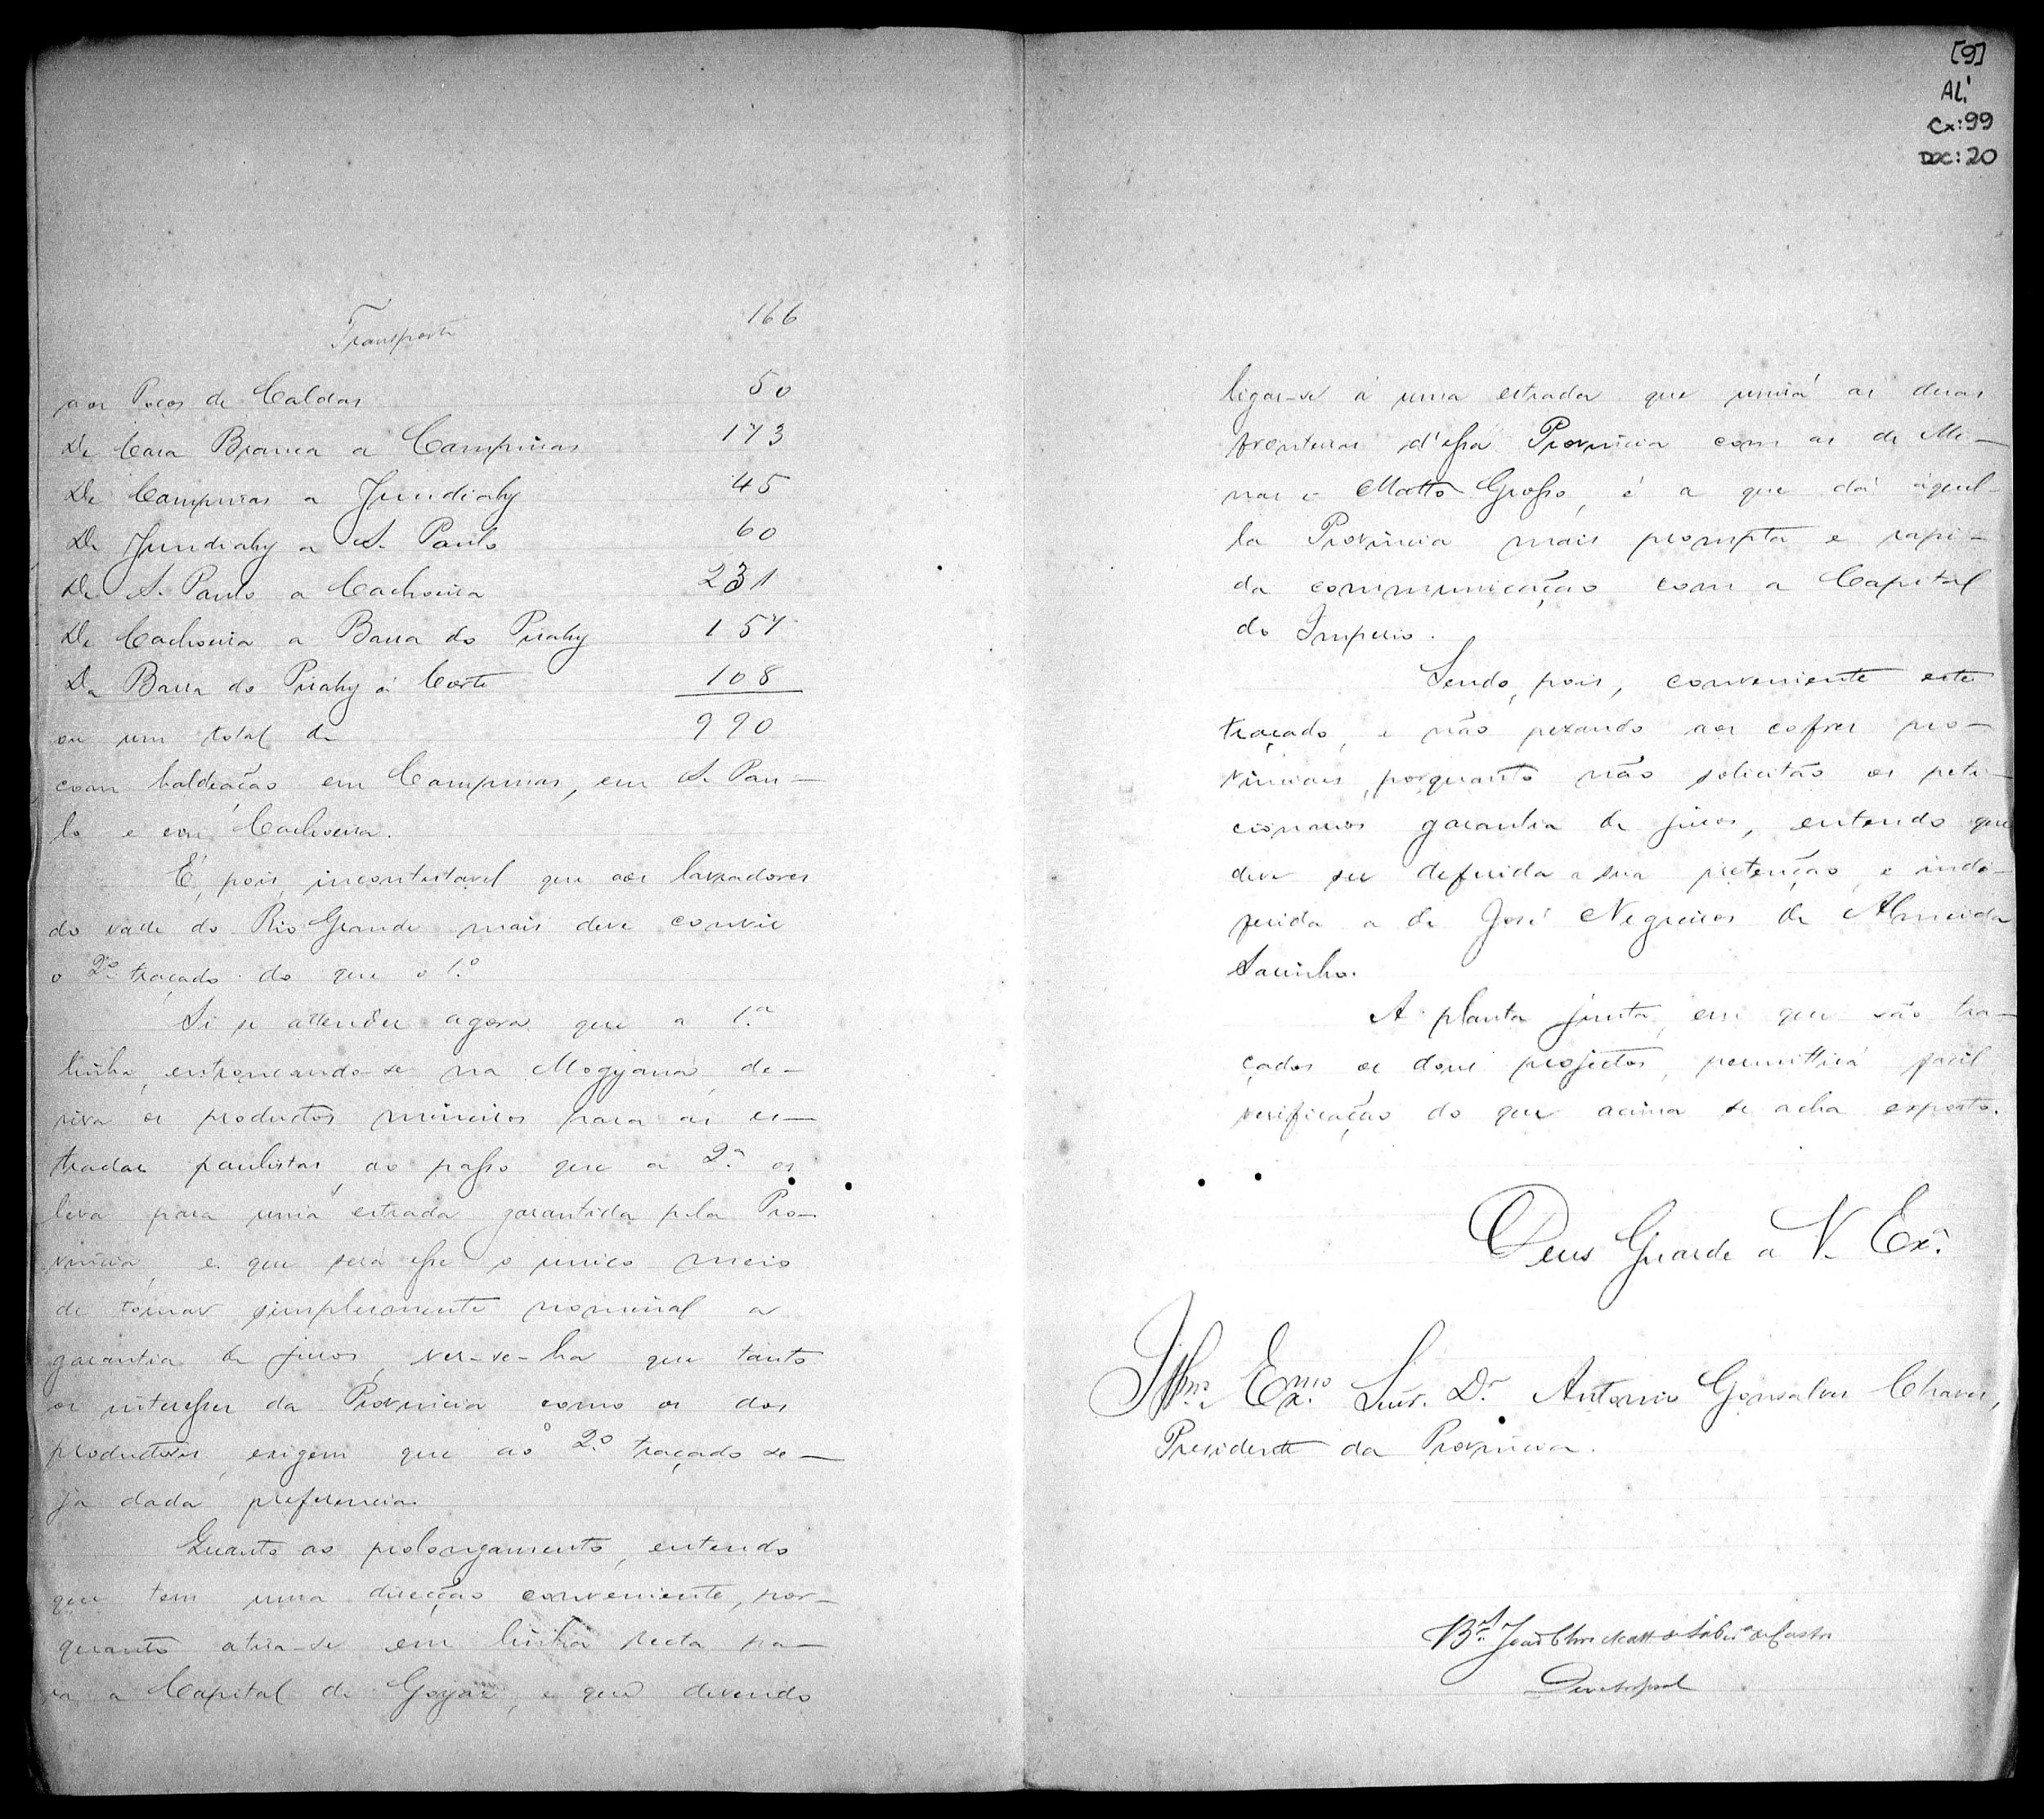 Transporte 166
aos Poços de Caldas 50
De Casa Branca a Campinas 173
De Campinas a Jundiahy 45
De Jundiahy a S. Paulo 60
De S. Paulo a Cachoeira 231
De Cachoeira a Barra do Pirahy 157
Da Barra do Pirahy á Corte 108
ou um total de 990
com baldeação em Campinas, em S. Pau-
lo e em Cachoeira.
É, pois, incontestavel que aos lavradores
do valle do Rio Grande mais deve convir
o 2º traçado do que o 1.º
Si se attender agora que a 1.ª
linha, entroncando-se na Mogyana, de-
riva os productos mineiros para as es-
tradas paulistas, ao passo que a 2.ª os
leva para uma estrada garantida pela Pro-
vincia, e que será esse o unico meio
de tornar simplesmente nominal a
garantia de juros, ver-se-ha que tanto
os interesses da Provincia como os dos
productores, exigem que ao 2.º traçado se-
ja dada preferencia.
Quanto ao prolongamento, entendo
que tem uma direcção conveniente, por-
quanto atira-se em linha recta pa-
ra a Capital de Goyaz, e que devendo
[9]
AL!
Cx:99
DOC:20
ligar-se á uma estrada que unirá as duas
fronteiras d'essa Provincia com as de Mi-
nas e Matto Grosso, é a que dá áquel-
la Provincia mais prompta e rapi-
da communicação com a Capital
do Imperio.
Sendo, pois, conveniente este
traçado, e não pezando aos cofres pro-
vinciaes, porquanto não solicitão os peti-
cionarios garantia de juros, entendo que
deve ser deferida a sua pretenção, e inde-
ferida a de José Negreiros de Almeida
Sarinho.
A planta junta, em que vão tra-
çados os dous projectos, permittirá facil
verificação do que acima se acha exposto.
Deus Guarde a V. Exª.
Illmo. Exmo. Snr. Dr. Antonio Gonsalves Chaves,
Presidente da Provincia.
Bel. João